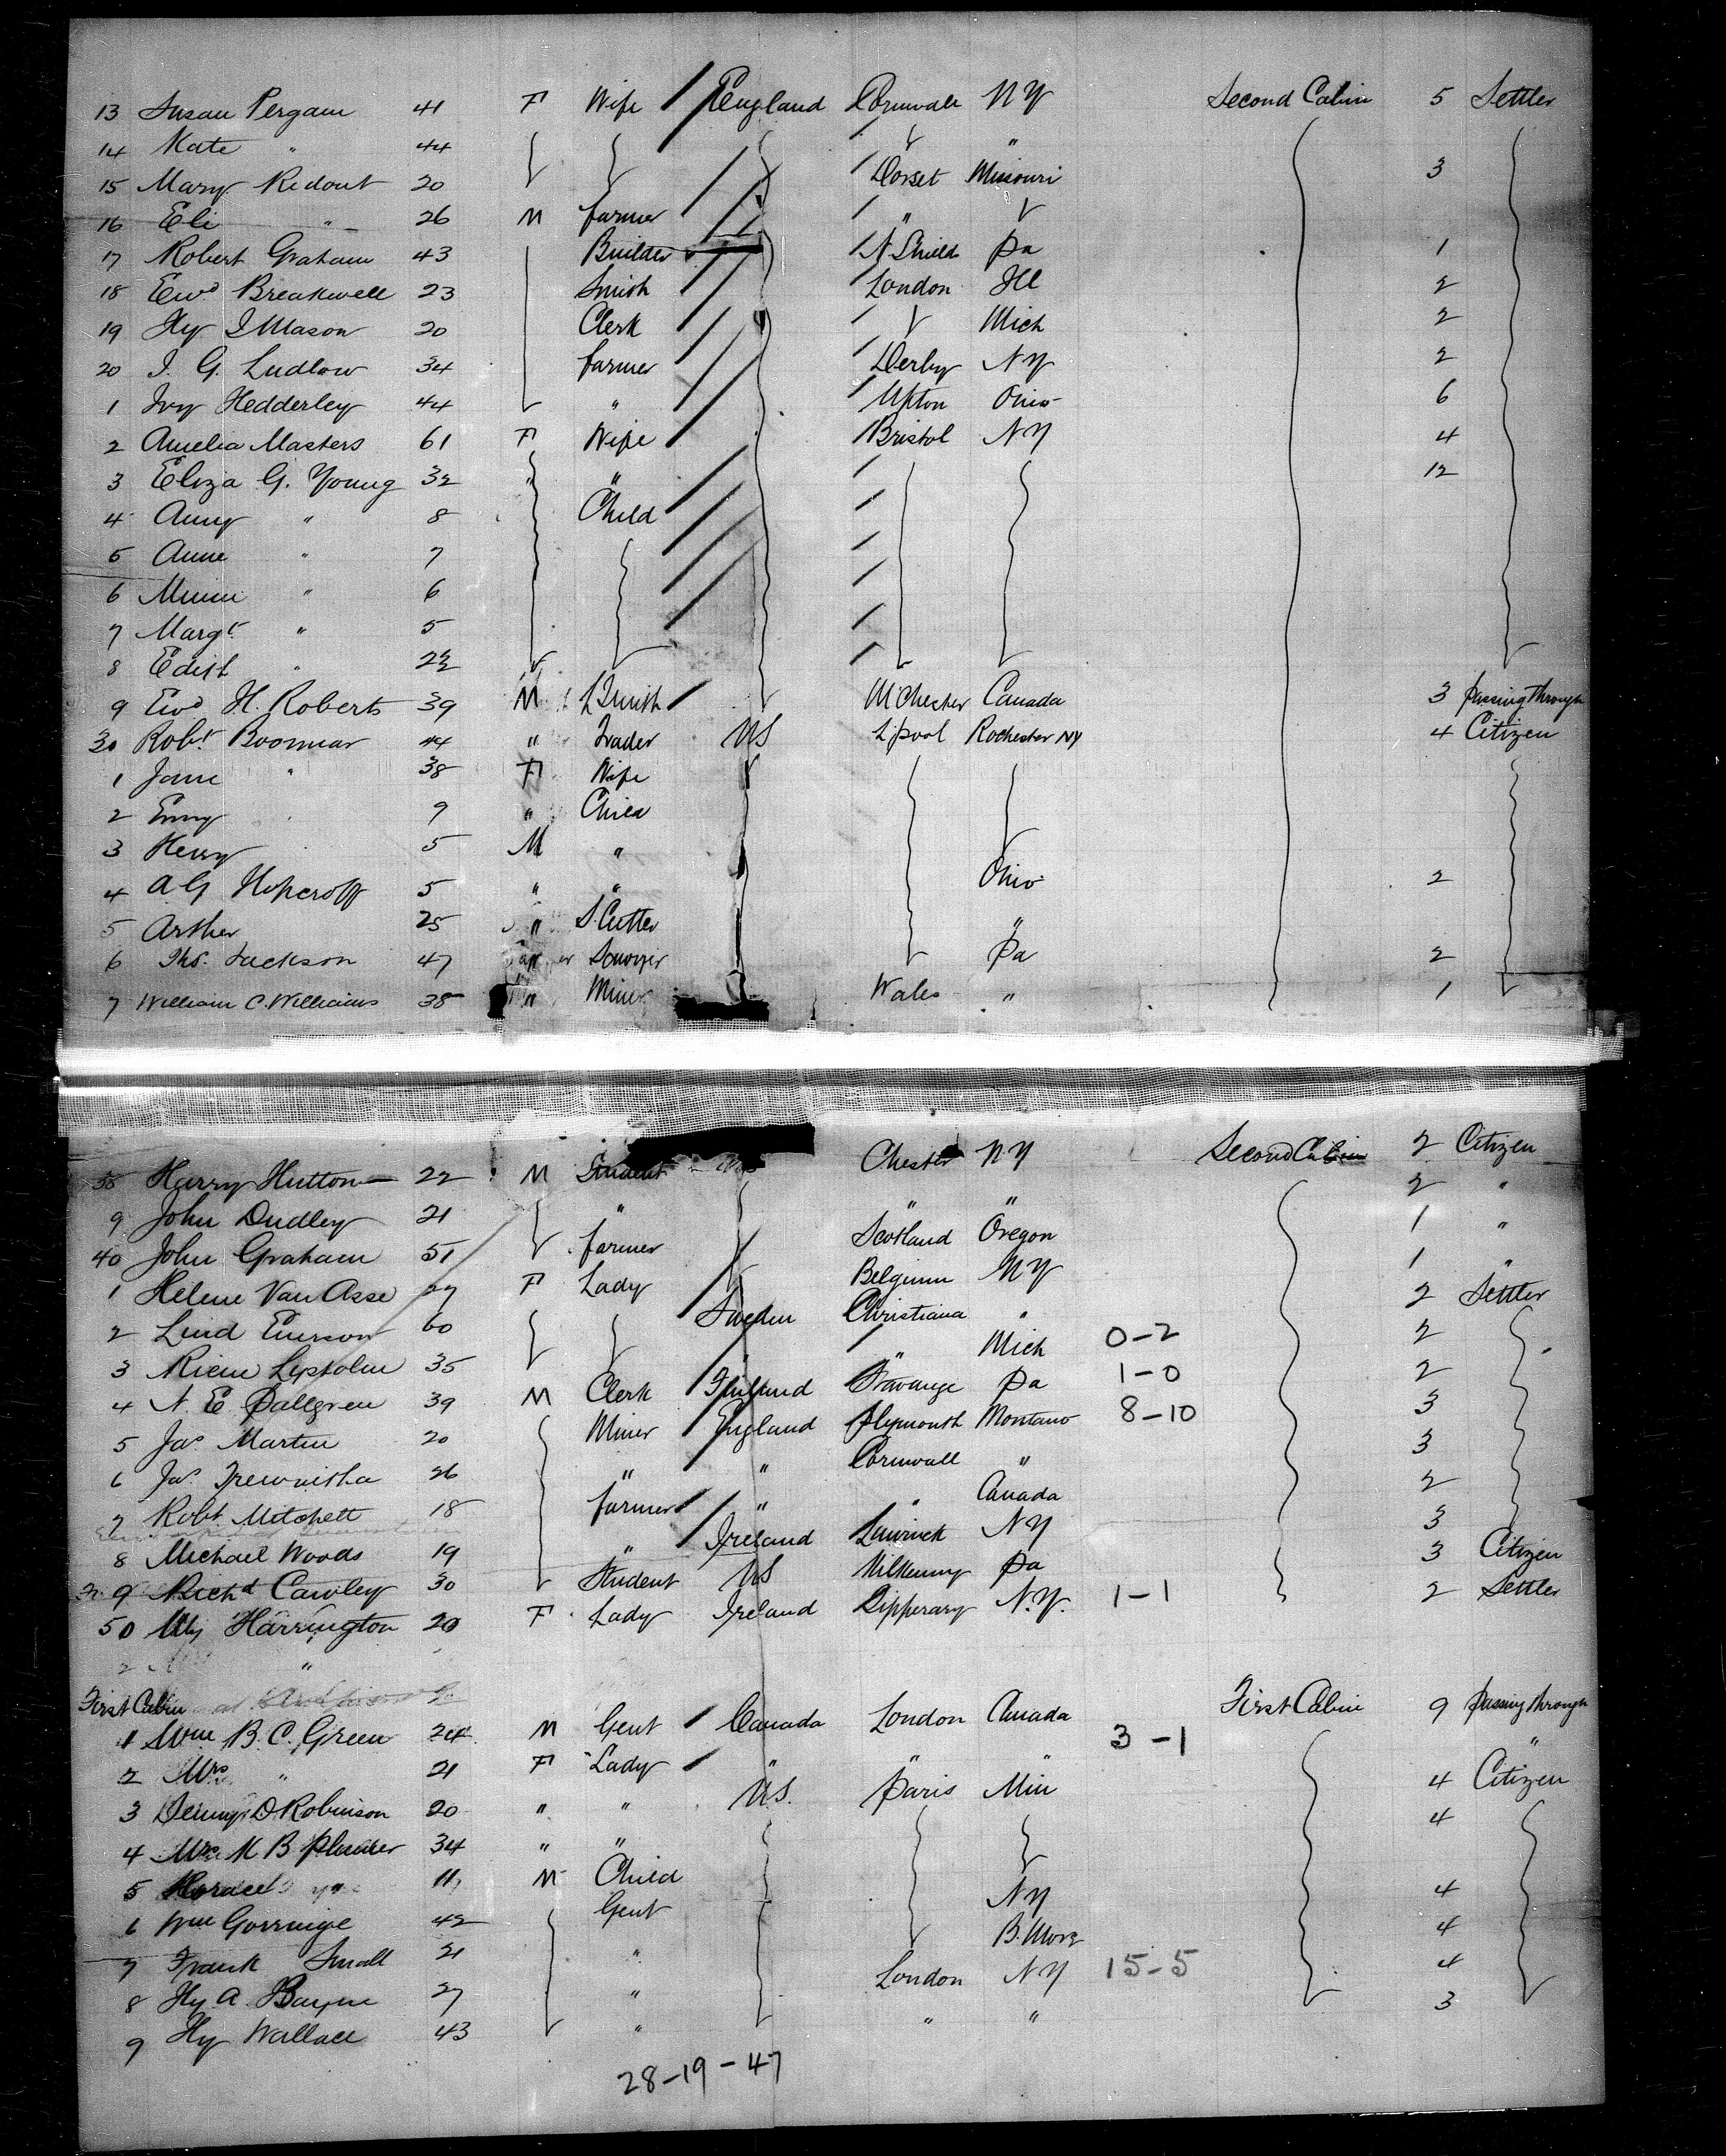 13 Susan Pergam 41 F Wife England Cornwall NY Second Cabin 5 Settler
14 Kate " 44 "
15 Mary Ridout 20 Dorset Missouri 3
16 Eli " 26 M farmer "
17 Robert Graham 43 Builder N. Shields Pa 1
18 Ewd Breakwell 23 Smith London Ill 2
19 Hy I Mason 20 Clerk Mich 2
20 I. G. Ludlow 34 farmer Derby NY 2
1 Ivy Hedderley 44 " Upton Ohio 6
2 Amelia Masters 61 F Wife Bristol NY 4
3 Eliza G. Young 32 " " 12
4 Amy " 8 Child
5 Anne " 7
6 Minni " 6
7 Margt " 5
8 Edith "
9 Ewd H. Roberts 39 M L Smith MChester Canada 3 passing through
30 Robt Boomar 44 " Trader US L'pool Rochester NY 4 Citizen
1 Jane " 38 F Wife
2 Emmy 9 " Child
3 Henry 5 M "
4 A G Hopcroft 5 " " Ohio 2
5 Arther 25 " S. Cutter "
6 Thos. Jackson 47 " Sawyer Pa 2
7 William C. Williams 38 " Miner Wales " 1
38 Harry Hutton 22 M Student Chester NY Second Cabin 2 Citizen
9 John Dudley 21 " " " 2 "
40 John Graham 51 farmer Scotland Oregon 1 "
1 Helene Van Asse 27 F Lady Belgium NY 1 "
2 Lind Emerson 60 Sweden Christiana " 2 Settler
3 35 " Mich 0-2 2
4 N. E Pallgren 39 M Clerk Finland Stavange Pa 1-0 2
5 Jas Martin 20 Miner England Plymouth Montano 8-10 3
6 Jas 26 " " Cornwall " 3
7 Robt Mitchell 18 farmer " " Canada 2
8 Michael Woods 19 " Ireland Limrick NY 3
9 Richd Cawley 30 Student US Kilkenny Pa 3 Citizen
50 My Harrington 20 F Lady Ireland Tipperary N.Y. 1-1 2 Settler
"
First Cabin
1 Wm B. C. Green 24 M Gent Canada London Canada First Cabin 9 passing through
2 Mrs " 21 F Lady " " " 3-1 "
3 D. Robinson 20 " " US. Paris Min 4 Citizen
4 Mrs M B 34 " " 4
5 Horace 11 M Child
6 Wm Gorringe 42 Gent NY 4
7 Frank Small 21 " B. More 4
8 Hy. A. Bayne 27 " London NY 15-5 4
9 Hy Wallace 43 " " " 3
28-19-47